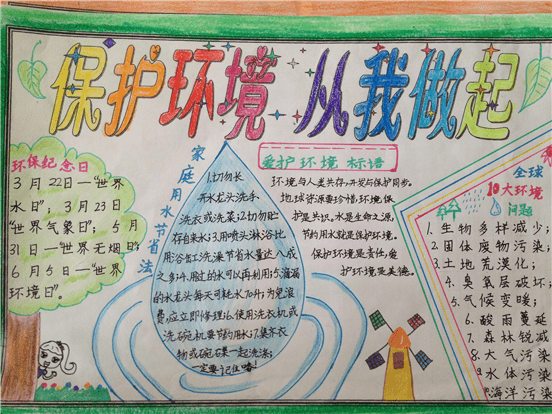 保护环境 从我做起
环保纪念日
3月22日—“世界
水日”；3月23日
“世界气象日”；5月
31日—“世界无烟日”；
6月5日—“世界
环境日”。
家庭用水节省法
1.切勿长
开水龙头洗手、
洗衣或洗菜；2.切勿贮
存自来水；3.用喷头淋浴比
用浴缸洗澡节省水量达八成
之多；4.用过的水可以再利用；5.滴漏
的水龙头每天可耗水70升，为免浪
费，应立即修理；6.使用洗衣机或
洗碗机要节约用水；7.集齐衣
物或碗碟一起洗涤；
一定要记住噢！
爱护环境 标语
环境与人类共存，开发与保护同步。
地球资源要珍惜，环境保
护是共识。水是生命之源，
节约用水就是保护环境。
保护环境是责任，爱
护环境是美德。
全球
10大环境
问题
1.生物多样减少；
2.固体废物污染
3.土地荒漠化；
4.臭氧层破坏；
5.气候变暖；
6.酸雨蔓延
7.森林锐减
8.大气污染
9.水体污染
海洋污染